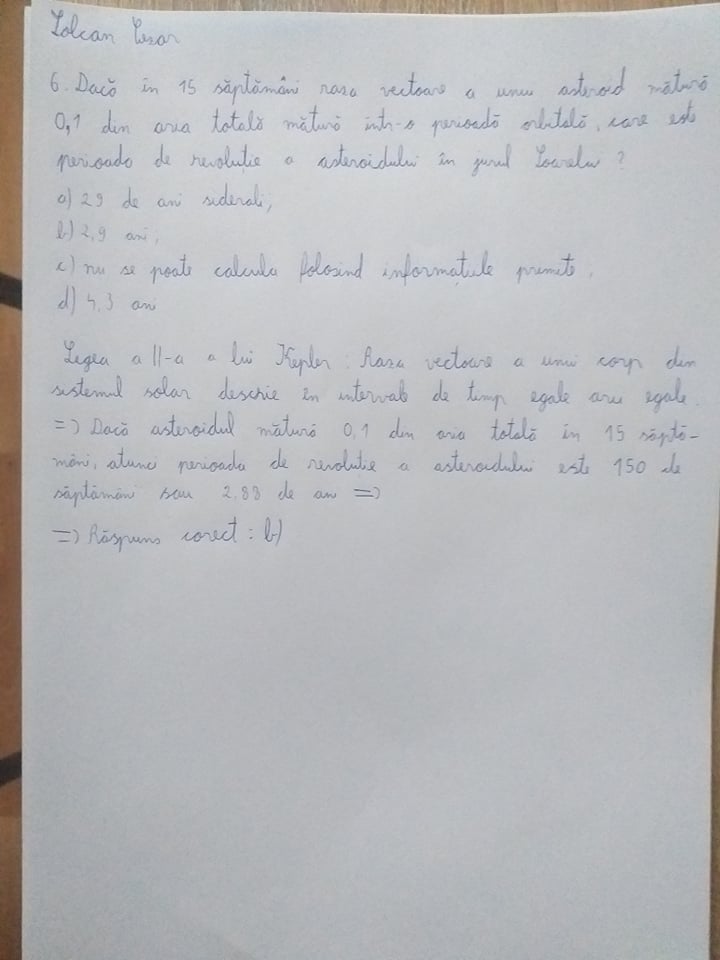 Tolcan Cezar
6. Dacă în 15 săptămâni raza vectoare a unui asteroid mătură
0,1 din aria totală mătură într-o perioadă orbitală, care este
perioada de revoluție a asteroidului în jurul Soarelui ?
a) 29 de ani siderali;
b) 2,9 ani;
c) nu se poate calcula folosind informațiile primite.
d) 4,3 ani
Legea a II-a a lui Kepler : Raza vectoare a unui corp din
sistemul solar descrie în intervale de timp egale arii egale.
=> Dacă asteroidul mătură 0,1 din aria totală în 15 săptă-
mâni, atunci perioada de revoluție a asteroidului este 150 de
săptămâni sau 2,88 de ani =>
=> Răspuns corect : b)